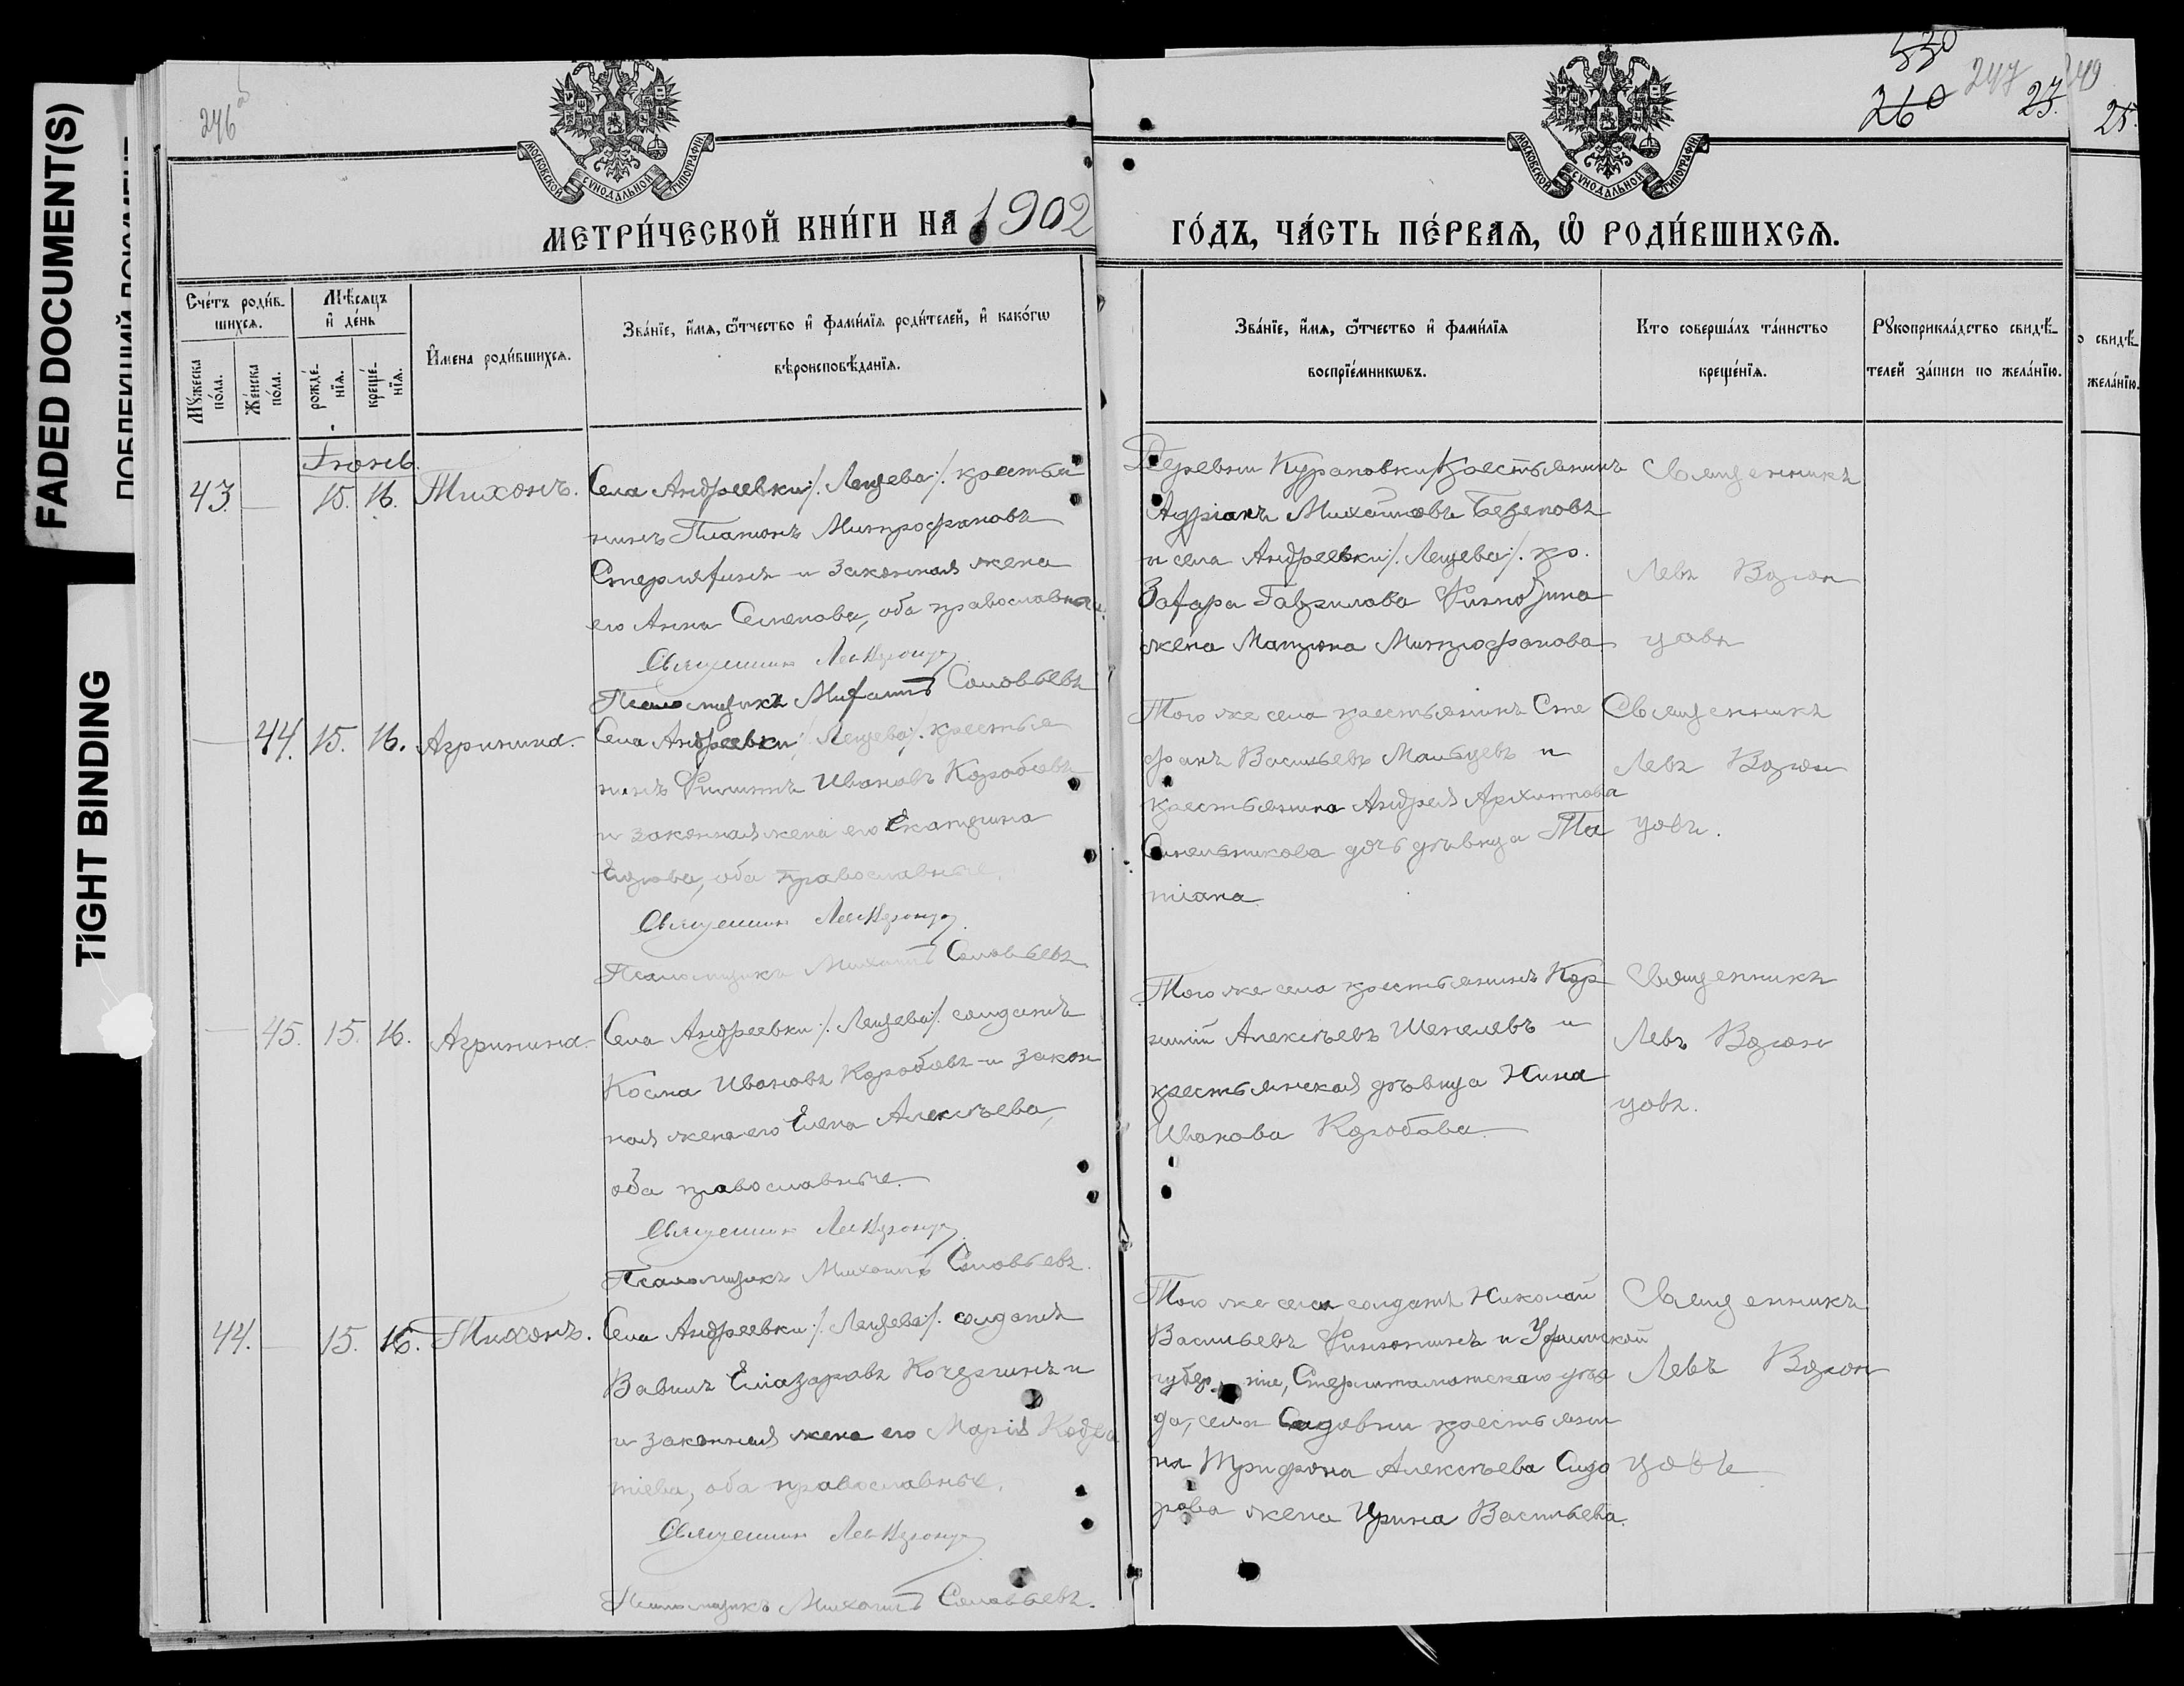 FADED DOCUMENT(S)
TIGHT BINDING
246 об
530
260
247
23.
249
25.
МОСКОВСКОЙ СѴНОДАЛЬНОЙ ТИПОГРАФІИ
МОСКОВСКОЙ СѴНОДАЛЬНОЙ ТИПОГРАФІИ
МЕТРИ́ЧЕСКОЙ КНИ́ГИ НА 1902
ГО́ДЪ, ЧА́СТЬ ПЕ́РВАЯ, Ѽ РОДИ́ВШИХСЯ.
Сче́тъ роди́в-
шихся.
Мꙋ́жеска
по́ла.
Же́нска
по́ла.
Мѣ́сяцъ
и҆ де́нь
рожде́-
нїѧ.
креще́-
нїѧ.
И҆мена роди́вшихсѧ.
Зва́нїе, и҆́мѧ, ѻ҆́тчество и҆ фами́лїѧ роди́телей, и҆ како́гѡ
вѣроисповѣ́данїѧ.
Зва́нїе, и҆́мѧ, ѻ҆́тчество и҆ фами́лїѧ
воспрїе́мникѡвъ.
Кто соверша́лъ та́инство
креще́нїѧ.
Рꙋкоприкла́дство свидѣ́-
телей за́писи по жела́нїю.
о свидѣ́-
жела́нїю.
Іюнь.
43. — 15. 16. Тихонъ.
Села Андреевки /. Лещева /. крестья
нинъ Платонъ Митрофановъ
Стерляхинъ и законная жена
его Анна Семенова, оба православные.
Священникъ Левъ
Псаломщикъ Михаилъ Соловьевъ
Деревни Курановки крестьянинъ
Адріанъ Михайловъ
и села Андреевки /. Лещева /. кр.
Захара Гаврилова
жена Матрона Митрофанова
Священникъ
Левъ
цовъ
— 44. 15. 16. Агрипина.
Села Андреевки /. Лещева /. крестья
нинъ Филиппъ Ивановъ Коробовъ
и законная жена его Екатерина
оба православные.
Священникъ Левъ
Псаломщикъ Михаилъ Соловьевъ
Того же села крестьянинъ Сте
фанъ Васильевъ Мальцевъ и
крестьянина Андрея Архиппова
Синельникова дочь дѣвица Та
тіана.
Священникъ
Левъ
цовъ.
— 45. 15. 16. Агрипина.
Села Андреевки /. Лещева /. солдатъ
Косма Ивановъ Коробовъ и закон
ная жена его Елена Алексѣева,
оба православные.
Священникъ Левъ
Псаломщикъ Михаилъ Соловьевъ.
Того же села крестьянинъ Кор
нилій Алексѣевъ Шепелевъ и
крестьянская дѣвица Нина
Иванова Коробова.
Священникъ
Левъ
цовъ.
44. — 15. 16. Тихонъ.
Села Андреевки /. Лещева /. солдатъ
Вавилъ Елиазаровъ Кочергинъ и
и законная жена его Марія Кодра
тіева, оба православные.
Священникъ Левъ
Псаломщикъ Михаилъ Соловьевъ.
Того же села солдатъ Николай
Васильевъ и Уфимской
губерніи, Стерлитаматскаго уѣз
да, села крестьяни
на Трифона Алексѣева Сидо
рова жена Ирина Васильева.
Священникъ
Левъ
цовъ